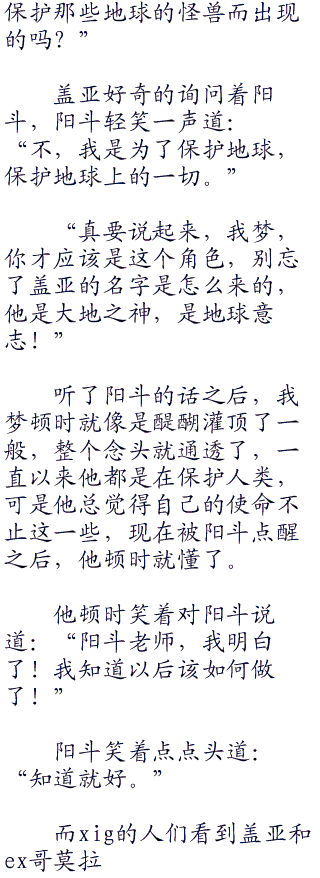 保护那些地球的怪兽而出现
的吗？”
盖亚好奇的询问着阳
斗，阳斗轻笑一声道：
“不，我是为了保护地球，
保护地球上的一切。”
“真要说起来，我梦，
你才应该是这个角色，别忘
了盖亚的名字是怎么来的，
他是大地之神，是地球意
志！”
听了阳斗的话之后，我
梦顿时就像是醍醐灌顶了一
般，整个念头就通透了，一
直以来他都是在保护人类，
可是他总觉得自己的使命不
止这一些，现在被阳斗点醒
之后，他顿时就懂了。
他顿时笑着对阳斗说
道：“阳斗老师，我明白
了！我知道以后该如何做
了！”
阳斗笑着点点头道：
“知道就好。”
而xig的人们看到盖亚和
ex哥莫拉